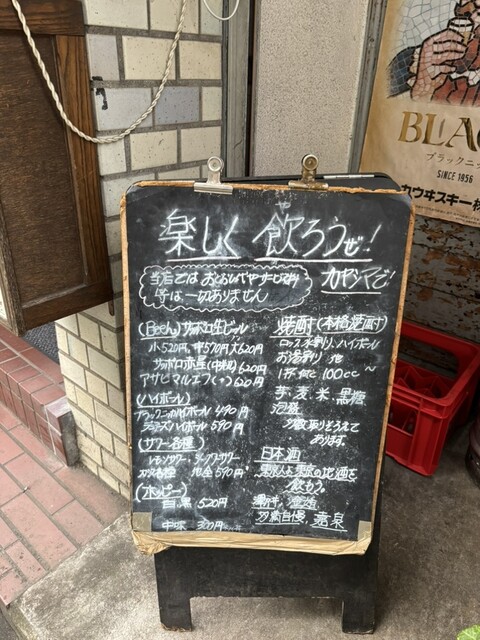 楽しく 飲ろうぜ!
カヤシマで!
当店では おとおしやサービス料
等は一切ありません
(Beer) サッポロ生ビール
小520円、中570円 大620円
サッポロ赤星(中瓶)620円
アサヒマルエフ(〃)620円
(ハイボール)
ブラックニッカハイボール 490円
ジムビームハイボール 590円
(サワー各種)
レモンサワー
他全590円
(ホッピー)
白黒 520円
中味 300円
焼酎(本格焼酎)
ロック、水割り、ハイボール
お湯割り 他
1杯 100cc〜
芋、麦、米、黒糖
泡盛
多数取りそろえて
あります。
日本酒
東京人は東京の地酒を
飲もう。
澤乃井、
多満自慢、嘉泉
BLAC
ブラックニッ
SINCE 1956
カウヰスキー株